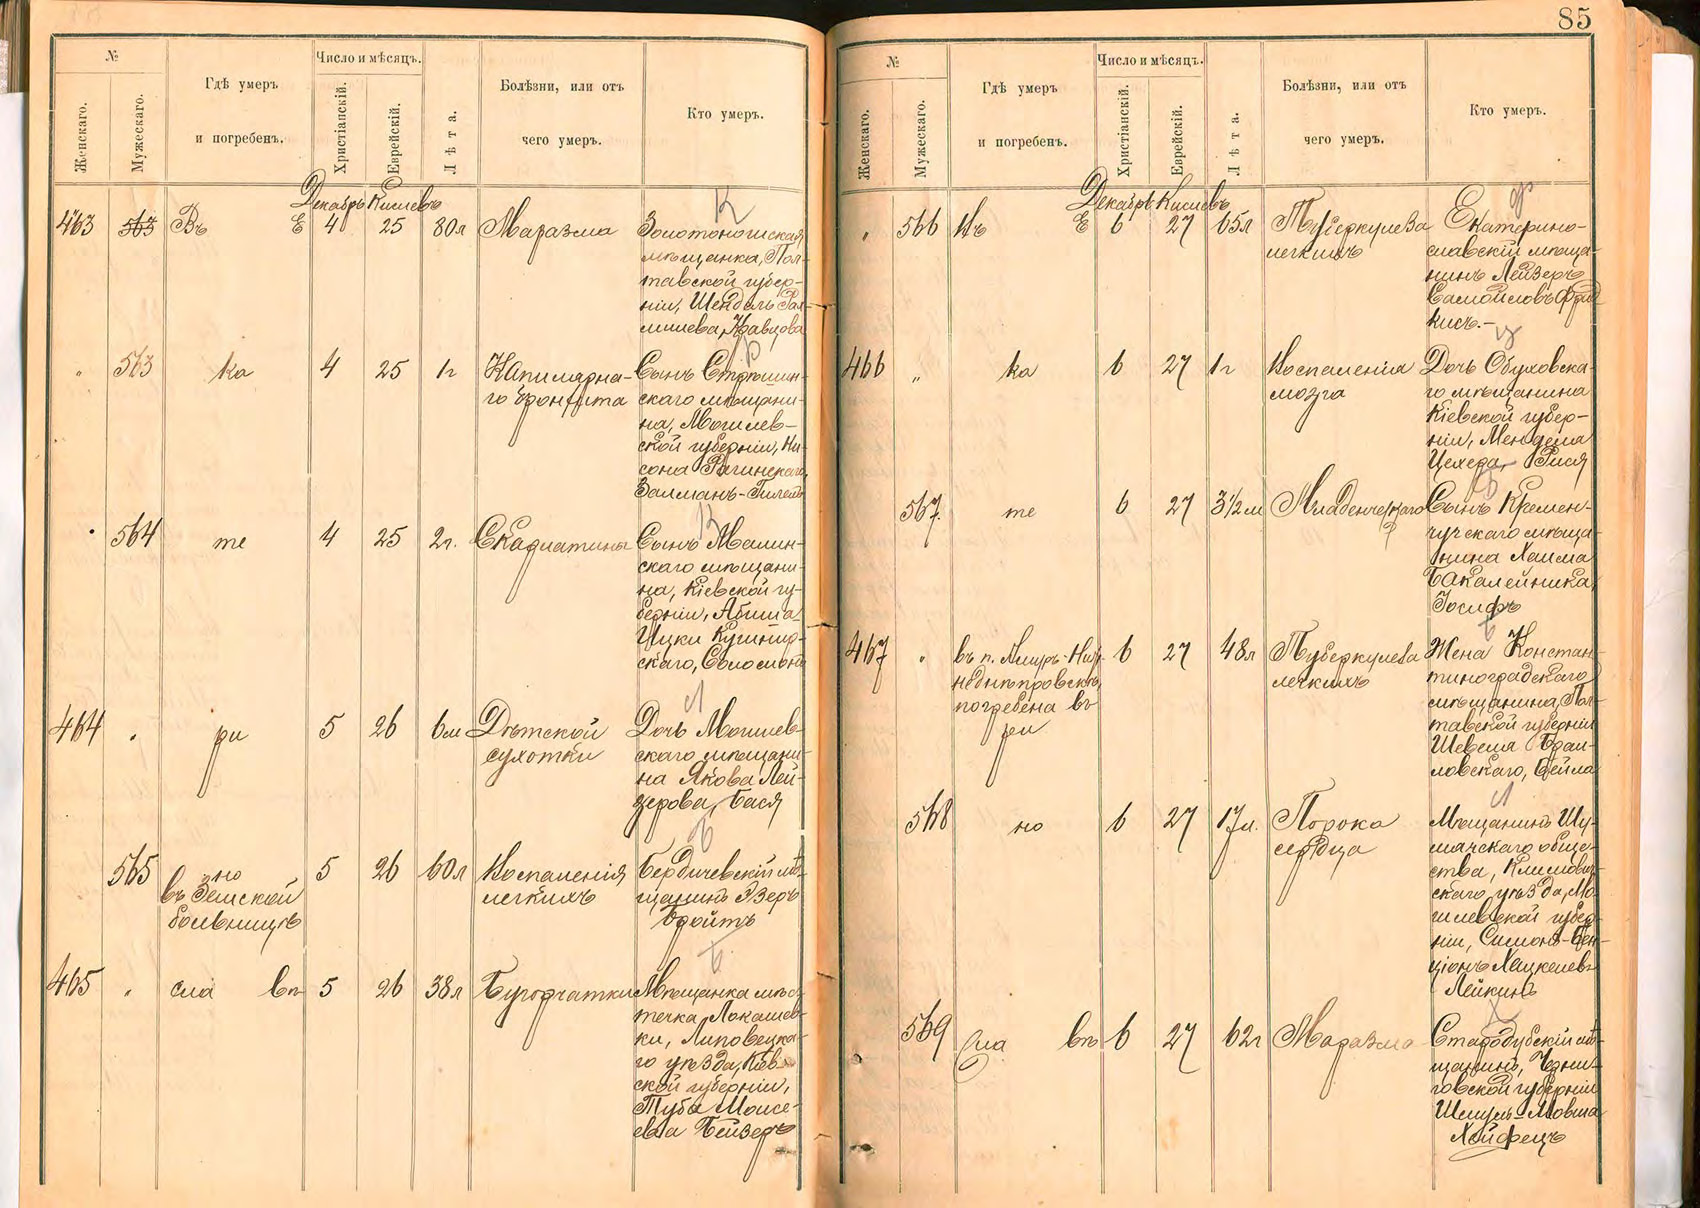 №
Женскаго.
Мужескаго.
Гдѣ умеръ
и погребенъ.
Число и мѣсяцъ.
Христіанскій.
Еврейскій.
Лѣта.
Болѣзни, или отъ
чего умеръ.
Кто умеръ.
Декабрь Кислевъ
463 563 Въ Е 4 25 80л Маразма
Золотоношская
мѣщанка, Пол-
тавской губер-
ніи, Шендель
Кавцова
К
" 563 ка 4 25 1г Капилярна-
го бронхита
Р
Сынъ
скаго мѣщани-
на, Могилев-
ской губерніи, Ни-
сона Рагинскаго
Залманъ-Гилель
564 те 4 25 2г. Скарлатины
К
Сынъ Малин-
скаго мѣщани-
на, Кіевской гу-
берніи, Абшиа
Ицки Кушнир-
скаго, Соломонъ
464 " ри 5 26 6м Дѣтской
сухотки
Л
Дочь Могилев-
скаго мѣщани-
на Якова Лей-
зерова, Бася
565 но
въ Земской
больницѣ
5 26 60л Воспаленія
легкихъ
Б
Бердичевскій мѣ-
щанинъ Эзеръ
Бройтъ
465 " сла въ 5 26 38л Бугорчатки
Б
Мѣщанка мѣс-
течка Лукашев-
ки, Липовецка-
го уѣзда, Кіев-
ской губерніи,
Туба Моисе-
ева Бейзеръ
85
№
Женскаго.
Мужескаго.
Гдѣ умеръ
и погребенъ.
Число и мѣсяцъ.
Христіанскій.
Еврейскій.
Лѣта.
Болѣзни, или отъ
чего умеръ.
Кто умеръ.
Декабрь Кислевъ
" 566 Въ Е 6 27 65л Туберкулеза
легкихъ
Ф
Екатерино-
славскій мѣща-
нинъ Лейзеръ
Самойловъ Фрад
кисъ.-
466 " ка 6 27 1г Воспаленія
мозга
Ц
Дочь Обуховска-
го мѣщанина
Кіевской губер-
ніи, Менделя
Цехера, Рися
567. те 6 27 3½м Младенческаго
Б
Сынъ Кремен-
чугскаго мѣща-
нина Хаима
Бакалейника,
Іосифъ
467 " въ п. Амуръ-Ниж-
неднѣпровскѣ,
погребена въ
ри
6 27 48л Туберкулеза
легкихъ
Б
Жена Констан-
тиноградскаго
мѣщанина, Пол-
тавской губерніи
Шевеля Браи-
ловскаго, Бейла
568 но 6 27 17л. Порока
сердца
Л
Мѣщанинъ Шу-
мячскаго обще-
ства, Климович-
скаго уѣзда, Мо-
гилевской губер-
ніи, Симонъ-Бен-
ціонъ Хацкелевъ
Лейкинъ
569 Сла въ 6 27 62г Маразма
Х
Стародубскій мѣ-
щанинъ, Черни-
говской губерніи
Шмуль-Мовша
Хейфецъ